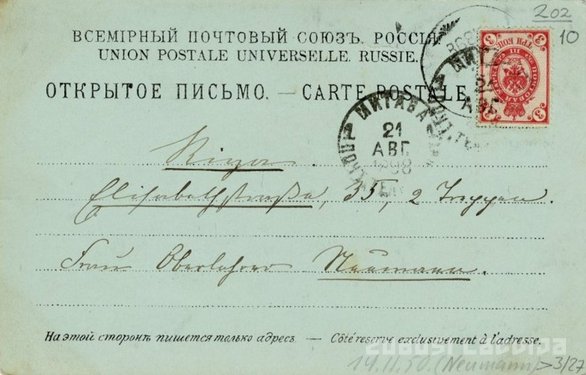 202
10
ВСЕМІРНЫЙ ПОЧТОВЫЙ СОЮЗЪ. РОССІЯ
UNION POSTALE UNIVERSELLE. RUSSIE.
ОТКРЫТОЕ ПИСЬМО. — CARTE POSTALE
3 3
3 3
МИТАВА
21
АВГ
МИТАВА
21
АВГ
1898
Riga.
Elisabethstraße, 35, 2 Treppen.
Frau Oberlehrer Neumann.
На этой сторонѣ пишется только адресъ. — Côté réservé exclusivement à l'adresse.
(Neumann) > 3/27